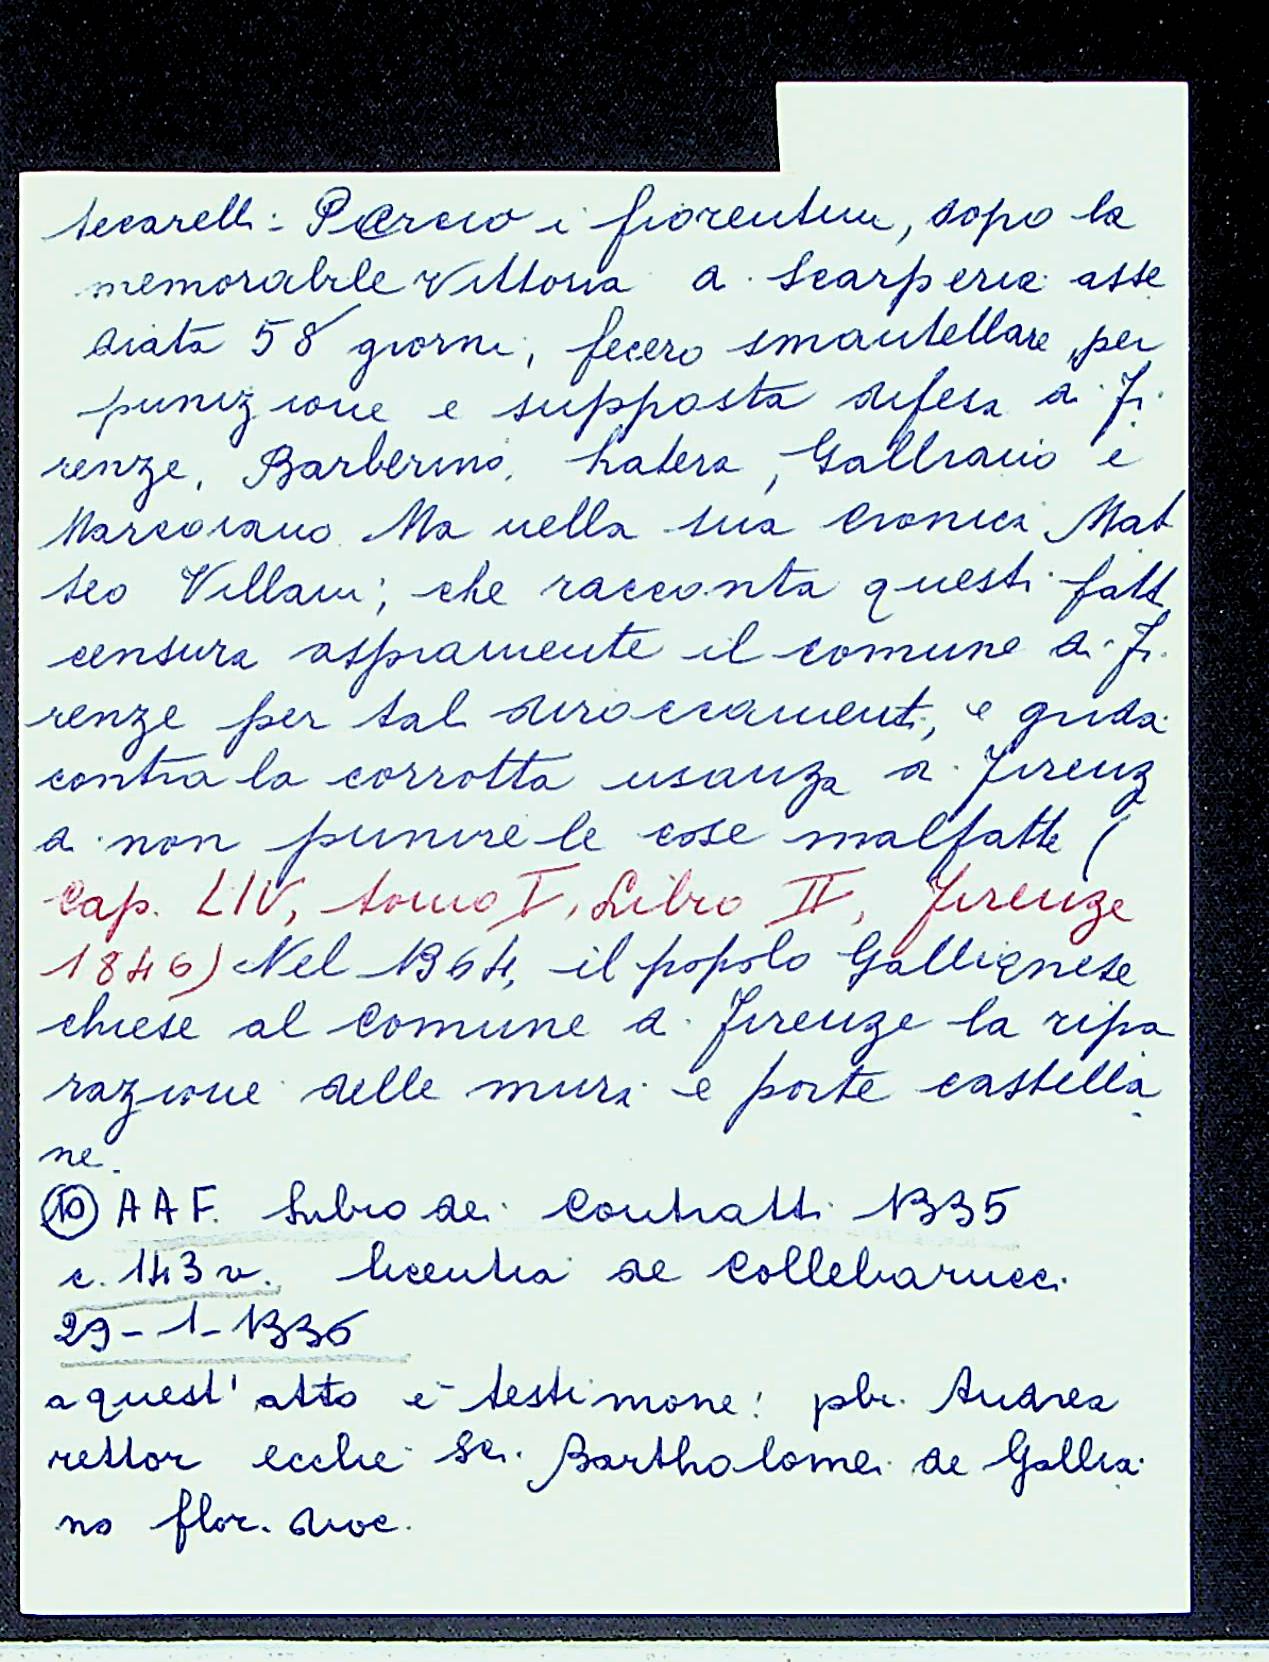 tecarelli: Perciò i fiorentini, dopo la
memorabile vittoria di Scarperia asse
diata 58 giorni, fecero smantellare per
punizione e supposta difesa di Fi
renze, Barberino, Latera, Galliano e
Marcoiano. Ma nella sua cronica Mat
teo Villani; che racconta questi fatti
censura aspramente il comune di Fi
renze per tali diroccamenti, e grida
contra la corrotta usanza di Firenz
di non punire le cose malfatte (
Cap. LIV, tomo I, Libro II, Firenze
1846) Nel 1364, il popolo Gallignese
chiese al Comune di Firenze la ripa
razione delle mura e porte castella
ne.
(10) A A F. Libro dei Contratti 1335
c. 143 v. licentia de Collebarucci
29-1-1336
a quest'atto è testimone: pbr. Andrea
rettor ecclie Sci. Bartholomei de Gallia
no flor. dioc.